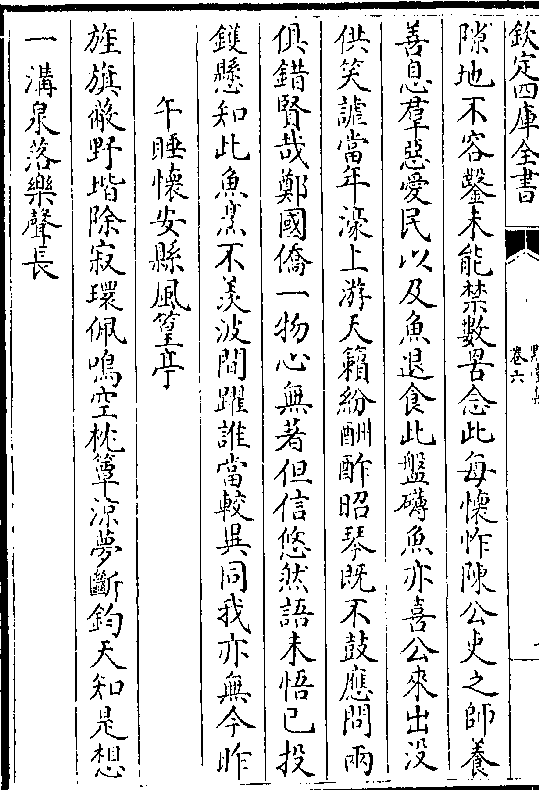 欽定四庫全書
卷六
隙地不容鑿未能禁數罟念此每懷怍陳公吏之師養
善息羣惡愛民以及魚退食此盤礴魚亦喜公來出没
供笑謔當年濠上游天籟紛酬酢昭琴既不鼓應問兩
俱錯賢哉鄭國僑一物心無著但信悠然語未悟已投
鑊懸知此魚不羨波間躍誰當較異同我亦無今昨
午睡懷安縣風篁亭
旌旗蔽野堦除寂環佩鳴空枕簟涼夢斷鈞天知是想
一溝泉落樂聲長